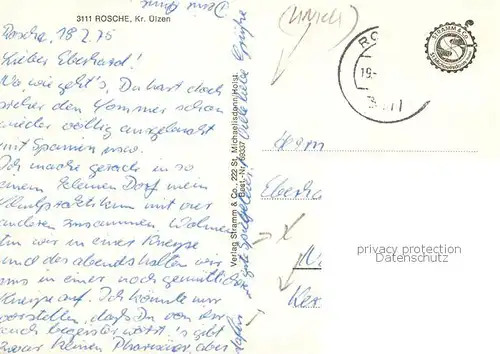 3111 ROSCHE, Kr. Ülzen
Rosche, 18.2.75
Lieber Eberhard!
Na, wie geht's, Du hast doch
sicher den Sommer schon
wieder völlig ausgebucht
mit Spanien usw.
Ich mache gerade in so
einem kleinen Dorf mein
Schulpraktikum mit vier
anderen zusammen. Wohnen
tun wir in einer Kneipe
und des abends halten wir
uns in einer noch gemütlicheren
Kneipe auf. Ich könnte mir
vorstellen, daß Du von ihr
auch begeistert wärst, 's gibt
zwar keinen Pharisäer, aber
Viele liebe Grüße
Verlag Stramm & Co., 222 St. Michaelisdonn/Holst.
Best.-Nr. 69337
STRAMM & CO.
St. Michaelisdonn
RO
19.
3111
Herrn
Eberha
privacy protection
Datenschutz